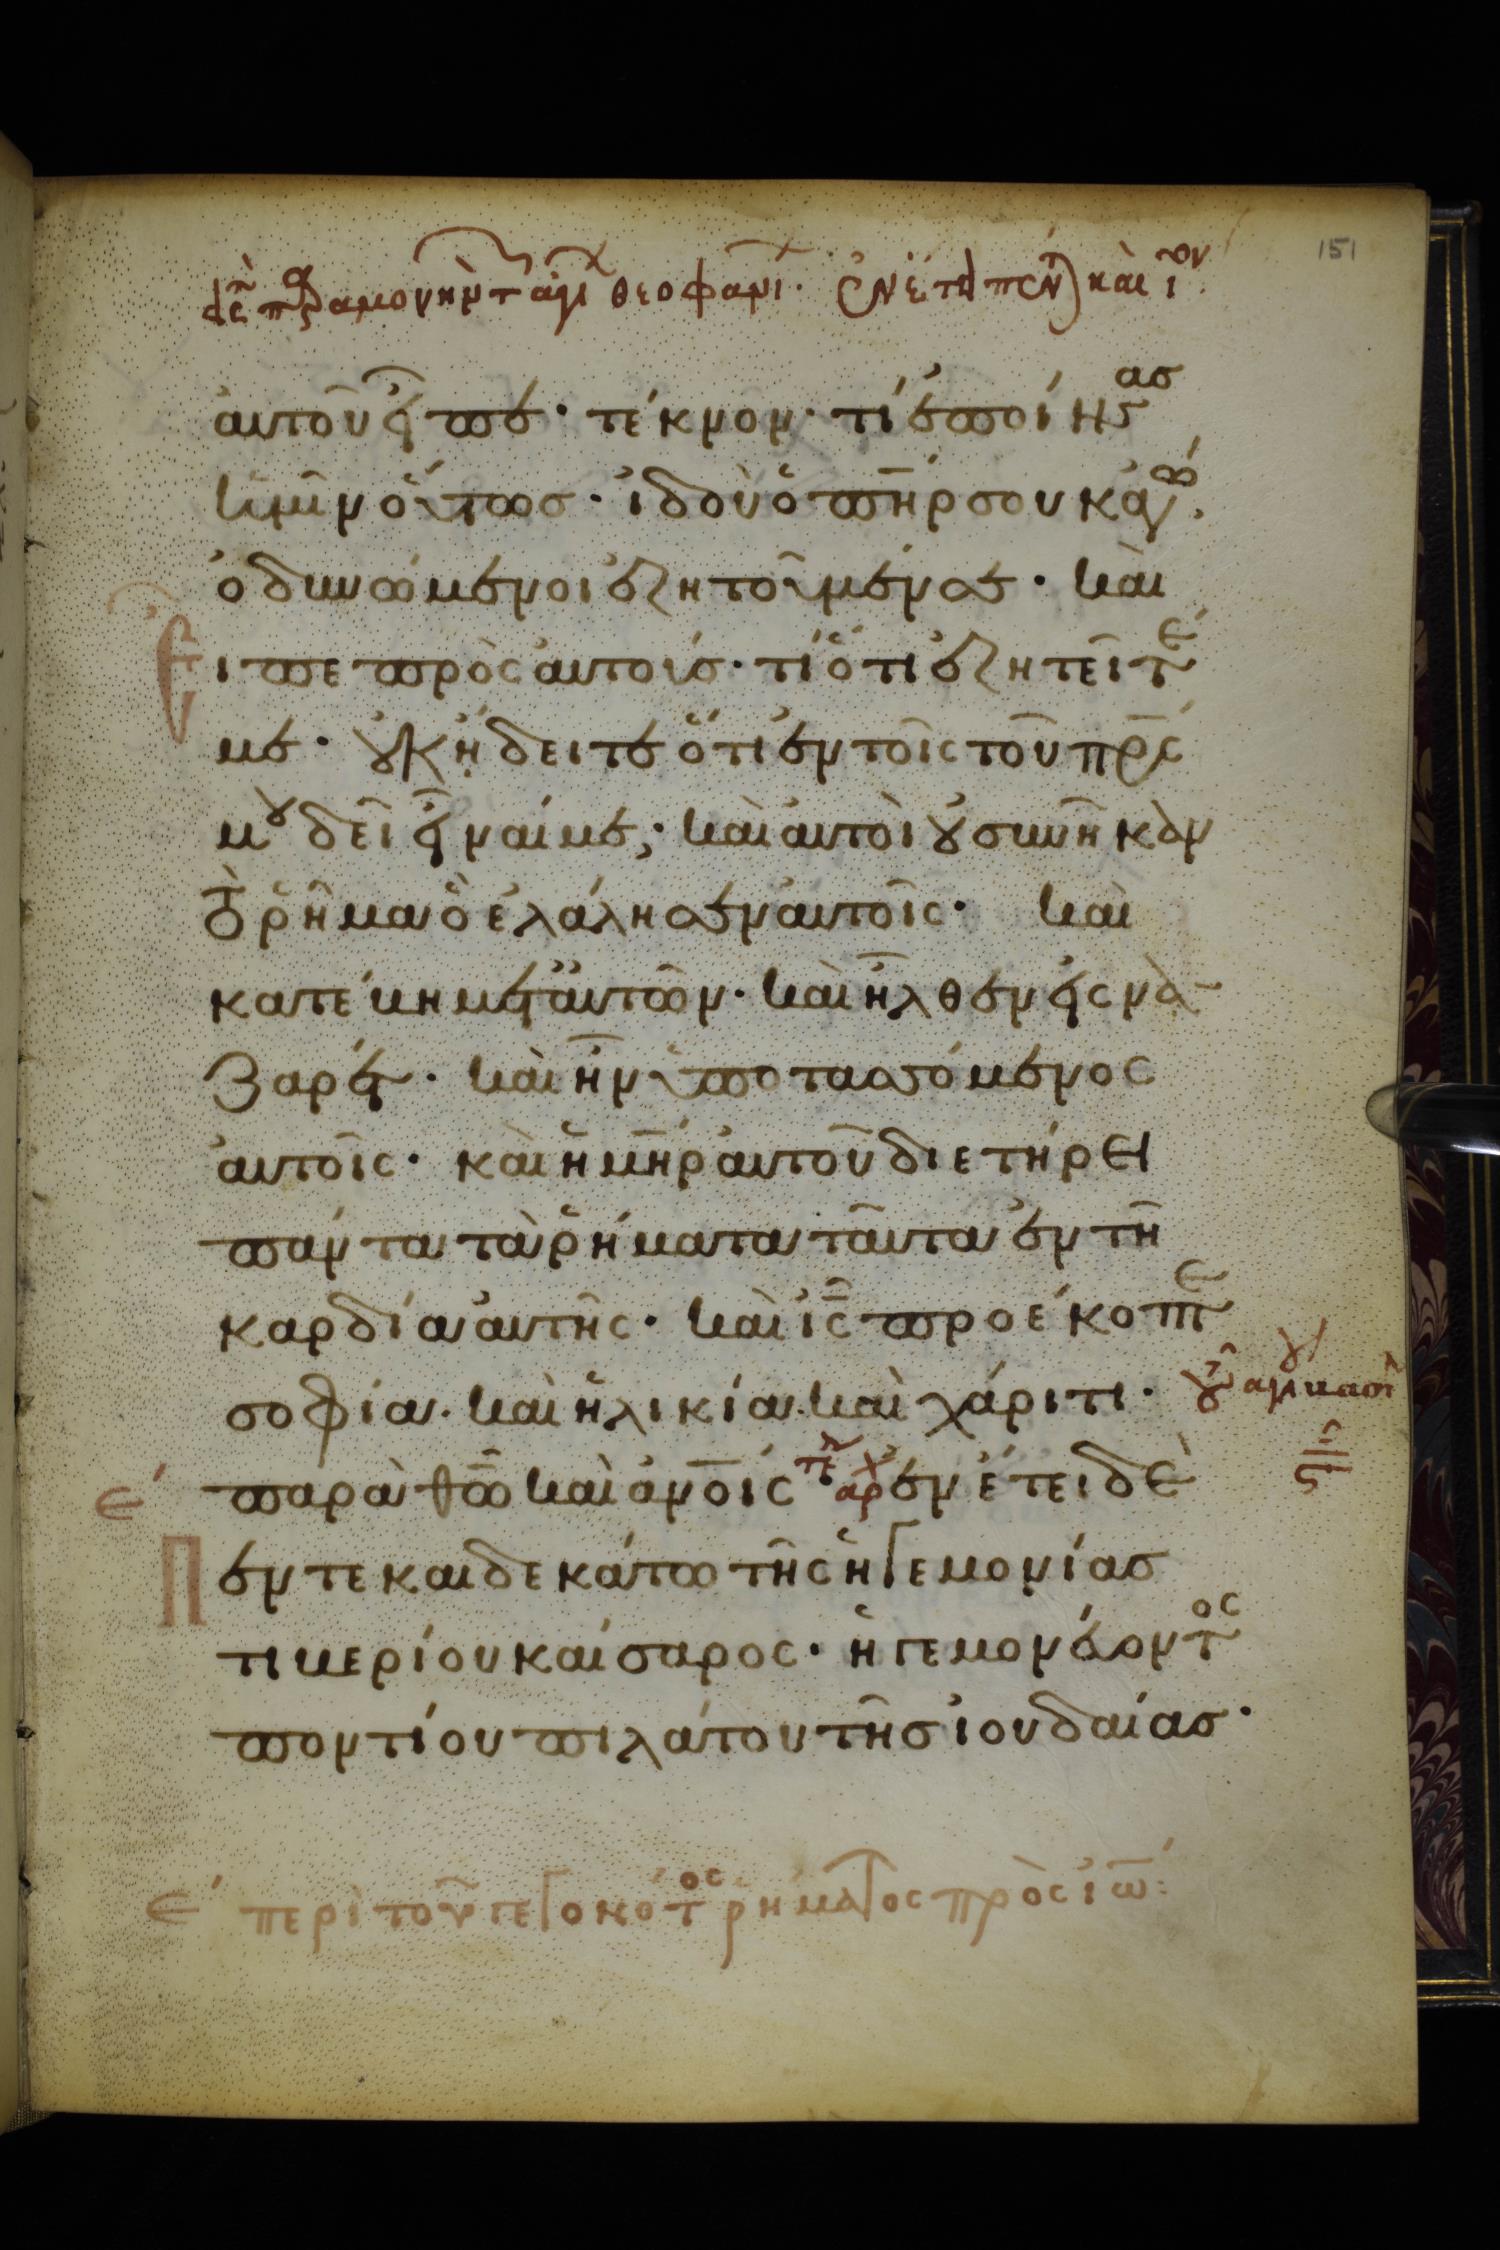 151
αὐτοῦ εἶπε· τέκνον· τί ἐποίησας
ἡμῖν οὕτως· ἰδοὺ ὁ πη̄ρ σου κἀγὼ
ὀδυνώμενοι ἐζητοῦμέν σε· καὶ
Εἶπε πρὸς αὐτούς· τί ὅτι ἐζητεῖτέ
με· οὐκ ᾔδειτε ὅτι ἐν τοῖς τοῦ πρ̄ς
μου δεῖ εἶναί με; καὶ αὐτοὶ οὐ συνῆκαν
τὸ ῥῆμα ὃ ἐλάλησεν αὐτοῖς· καὶ
κατέβη μετ' αὐτῶν· καὶ ἦλθεν εἰς να
ζαρέτ· καὶ ἦν ὑποτασσόμενος
αὐτοῖς· καὶ ἡ μη̄ρ αὐτοῦ διετήρει
πάντα τὰ ῥήματα ταῦτα ἐν τῇ
καρδία αὐτῆς· καὶ ις̄ προέκοπτε
σοφία· καὶ ἡλικία· καὶ χάριτι·
ε' παρὰ θω̄ καὶ ἀνο̄ις τε αρχ ἐν ἔτει δὲ
Πεντεκαιδεκάτω τῆς ἡγεμονίας
τιβερίου καίσαρος· ἡγεμονεύοντος
ποντίου πιλάτου τῆς ἰουδαίας·
ε' περὶ τοῦ γεγονότος ῥήματος πρὸς ἰω̄: